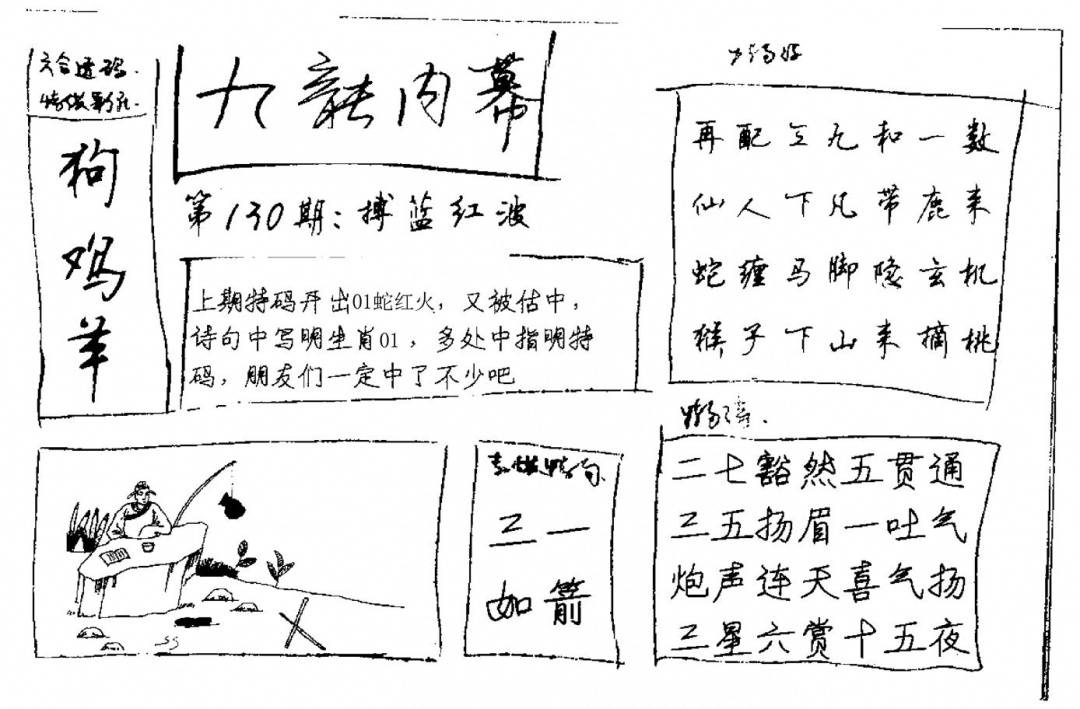 六合透码
狗
鸡
羊
九龍内幕
第130期：搏蓝红波
上期特码开出01蛇红火，又被估中，
诗句中写明生肖01，多处中指明特
码，朋友们一定中了不少吧
再配三九和一数
仙人下凡带鹿来
蛇缠马脚隐玄机
猴子下山来摘桃
二一
如箭
二七豁然五贯通
三五扬眉一吐气
炮声连天喜气扬
三星六赏十五夜